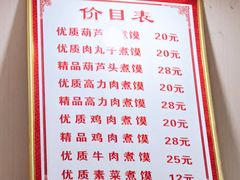 价目表
优质葫芦 煮馍 20元
优质肉丸子煮馍 20元
精品葫芦头煮馍 28元
优质高力肉煮馍 20元
精品高力肉煮馍 28元
优质鸡肉煮馍 20元
精品鸡肉煮馍 28元
优质牛肉煮馍 25元
优质素菜煮馍 12元